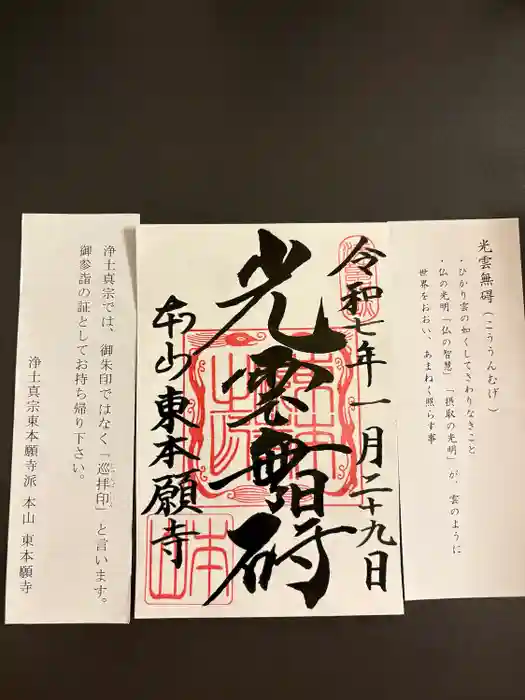 光雲無碍（こううんむげ）
・ひかり雲の如くしてさわりなきこと
・仏の光明「仏の智慧」「摂取の光明」が、雲のように
世界をおおい、あまねく照らす事
令和七年一月二十九日
光雲無碍
本山東本願寺
浄土真宗では、御朱印ではなく「巡拝印」と言います。
御参詣の証としてお持ち帰り下さい。
浄土真宗東本願寺派 本山 東本願寺